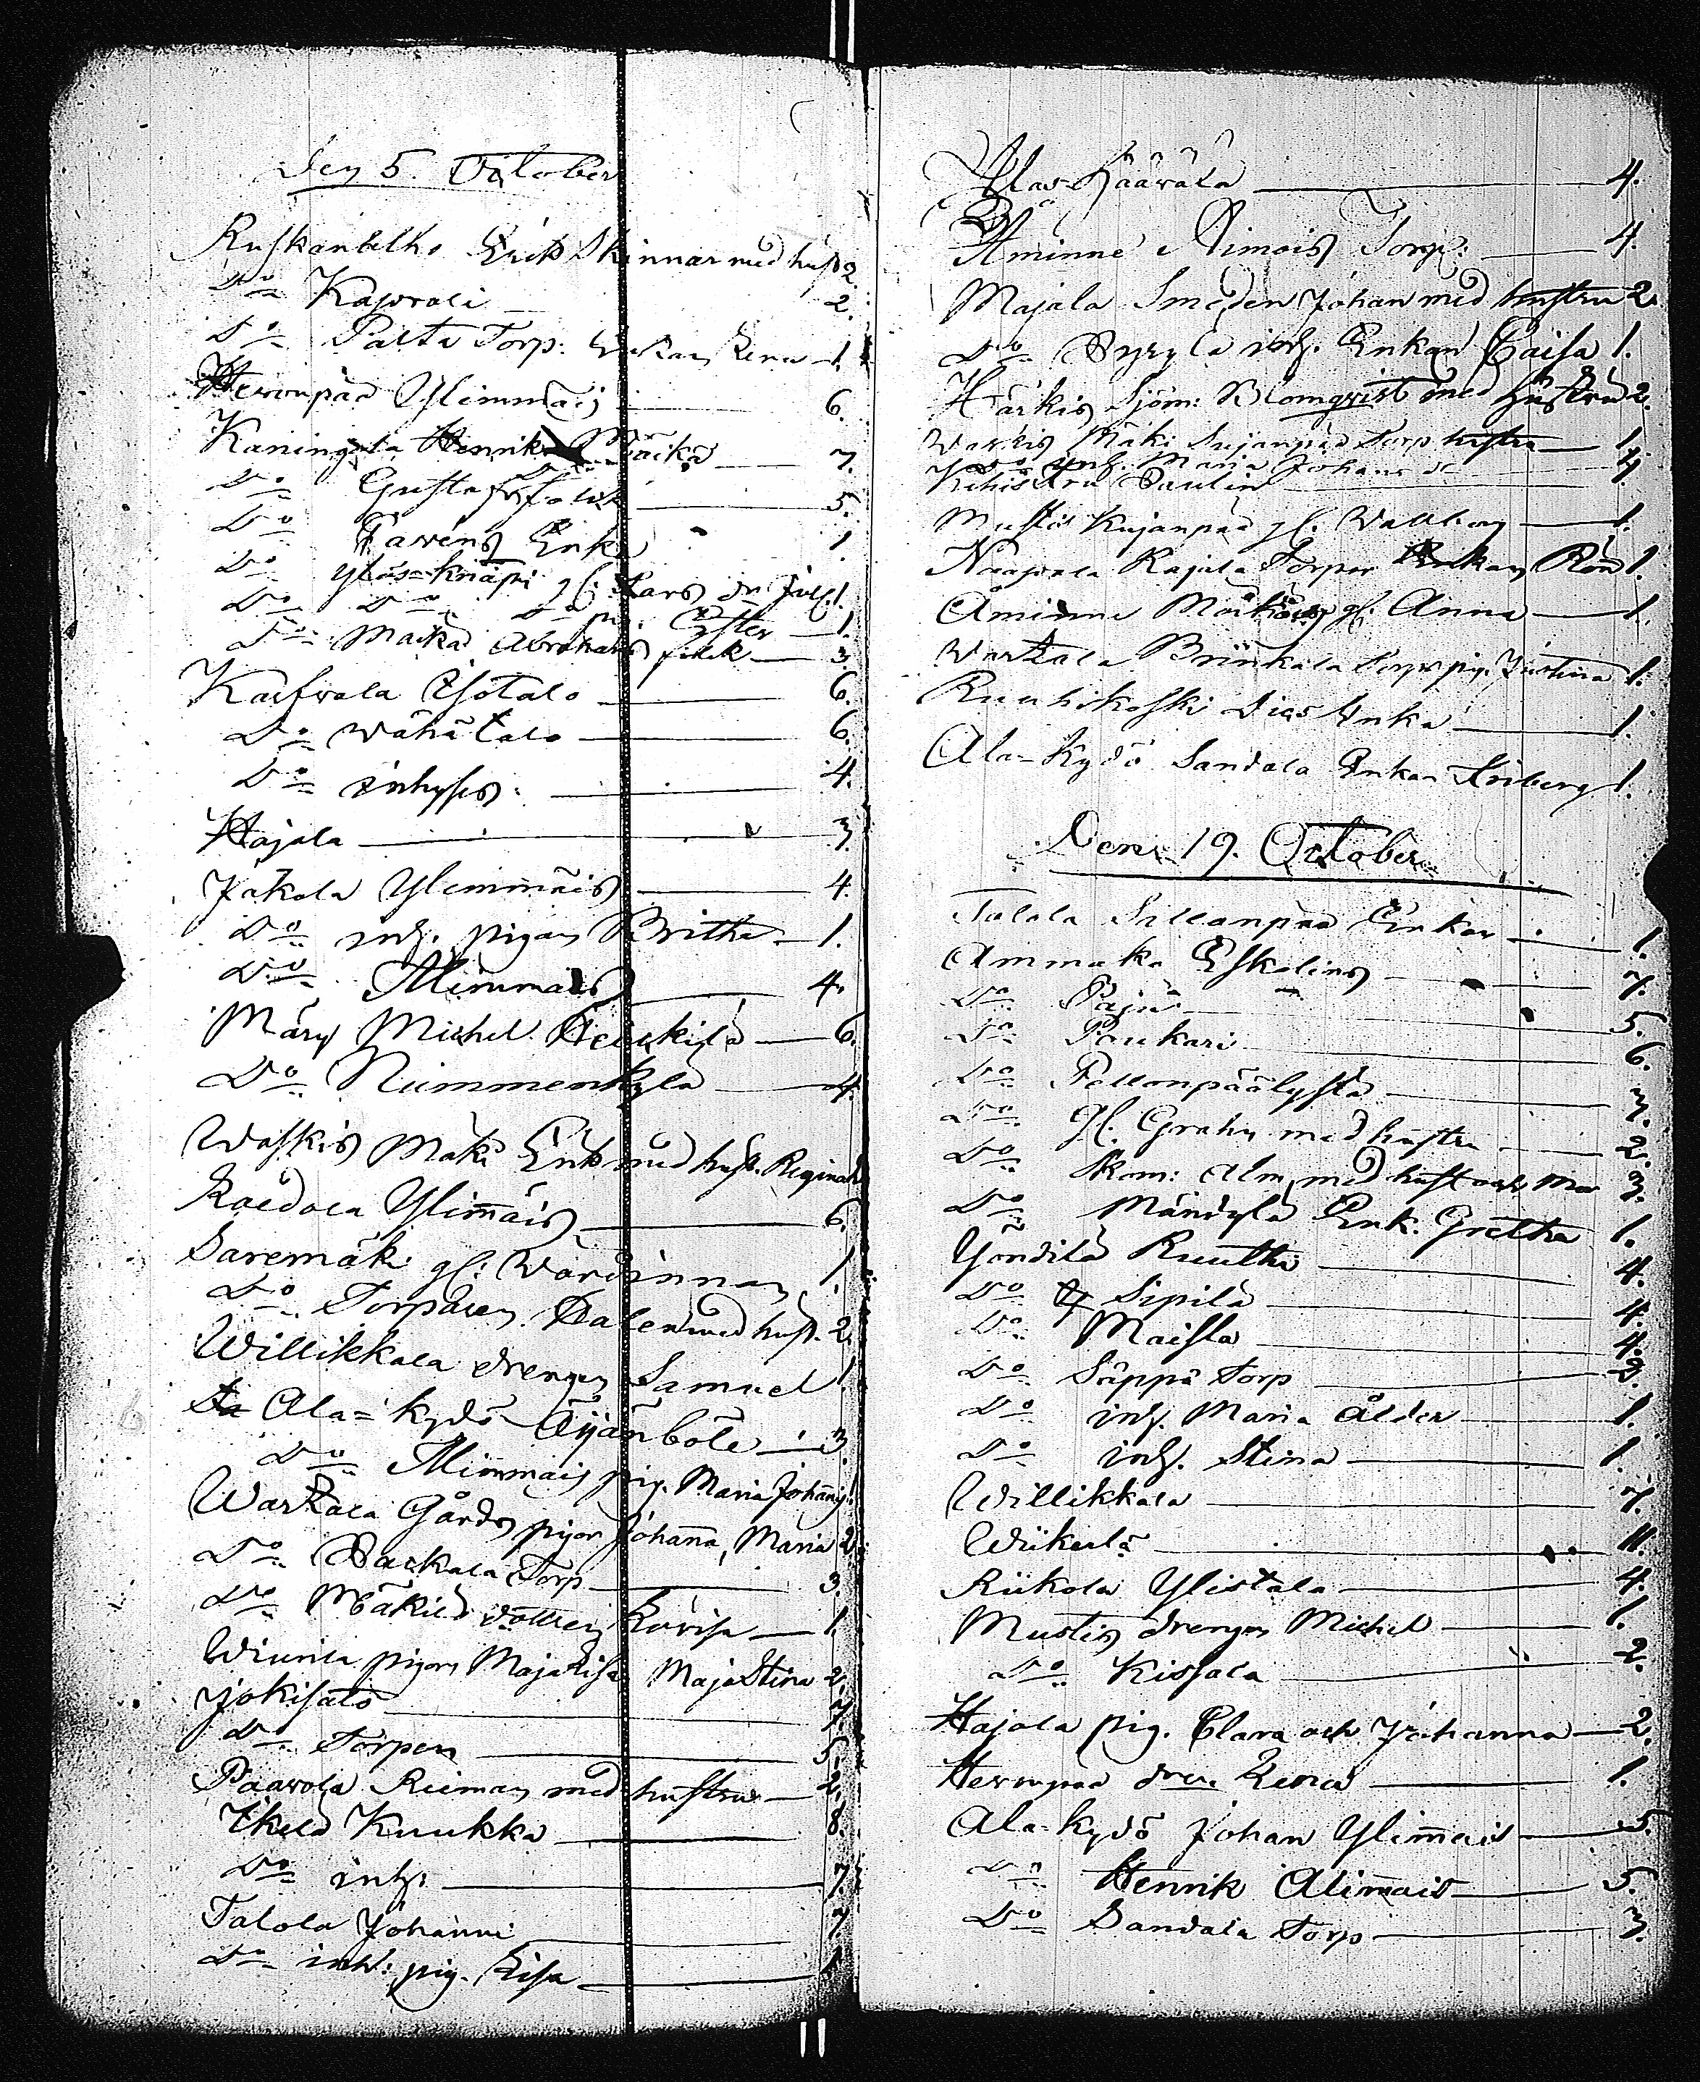 Den 5. October
Ruskanblho Erik Skinnar med hust 2.
Do Kajvoli 2.
Do Palta Torp: Enkan Lena 1.
Hevonpää Ylimmäis 6.
Kaningola Henrik Mäikä 7.
Do Gustafs folck 5.
Do Favens Enka 1.
Do Yläs-Knäpi gl. Lars dr. Jul. 1.
Do Do Do pig. Ester 1.
Do Maikä Abrahams folck 3.
Karfvola Isotalo 6.
Do Wähätalo 6.
Do inhyses 4.
Hajala 3.
Jakola Ylemmäis 4.
Do inh. pigan Britha 1.
Do Alimmais 4.
Märy Michel Heickilä 6.
Do Nummenkylä 4.
Waskis Mäki Erik med hust. Regina
Kaedola Ylimmäis 6.
Saremäki gl: Wärdinnan 1.
Do Torparen Dalen med hust. 2.
Willikkala drengen Samuel 1.
Ala-kydö Äijänböle 3.
Do Alimmais pig. Maria Johans
Wartala Gårds pigor Johanna, Maria 2.
Do Packala Torp 3.
Do Mäkilä dottren Lovisa 1.
Wiurila pigorn Maja Lisa Maja Stina 2.
Jokisato 7.
Do Torpen 5.
Paavola Rieman med hustru 2.
Ikelä Kuukka 8.
Do inh: 7.
Talola Johanni 7.
Do inh: pig. Lisa 1
Yläs-Häärälä 4.
Åminne Aimois Torp: 4.
Majala Smeden Johan med hustru 2.
Do Pyzyla inh. Enkan Caisa 1.
Härkis Sjöm: Blomqvist med Hustru 2.
Waskis Mäki Sujanpää Torp hustru 1.
Do inh. Maria Johans dr
Kihistru Paulin 4
Mustis Kujanpää gl. Wallberg 1.
Näapala Rajala Torpar Enkan Rön 1.
Åminne Märkäis gl. Anna 1.
Wartala Brinkala Torps pig. Justina 1.
Ruuhikoski Dies Enka 1.
Ala-Kydö Sandala Enkan Friberg 1.
Den 19. October
Talola Sillanpää Enkan 1.
Ammaka Eskolins 7.
Do Paju 5.
Do Paukari 6.
Do Pellonpäälystä 3.
Do gl. Grahn med hustru 2.
Do Skom: Alm med hust och Mor 3.
Do Mändylä Enk. Gretha 1.
Yöndilä Ruutki 4.
Do Sipilä 4.
Do Maisla 4.
Do Säppä Torp 2.
Do inh. Maria Ålder 1.
Do inh. Stina 1.
Willikkala 7.
Wiikerlä 11.
Riikola Ylistalo 4.
Mustis drengen Michel 1.
Do Kissala 2.
Hajala pig. Clara och Johanna 2.
Hevonpää dr. Lena 1.
Ala-kydö Johan Ylimmais 5.
Do Henrik Alimmais 5.
Do Sandala Torp 3.